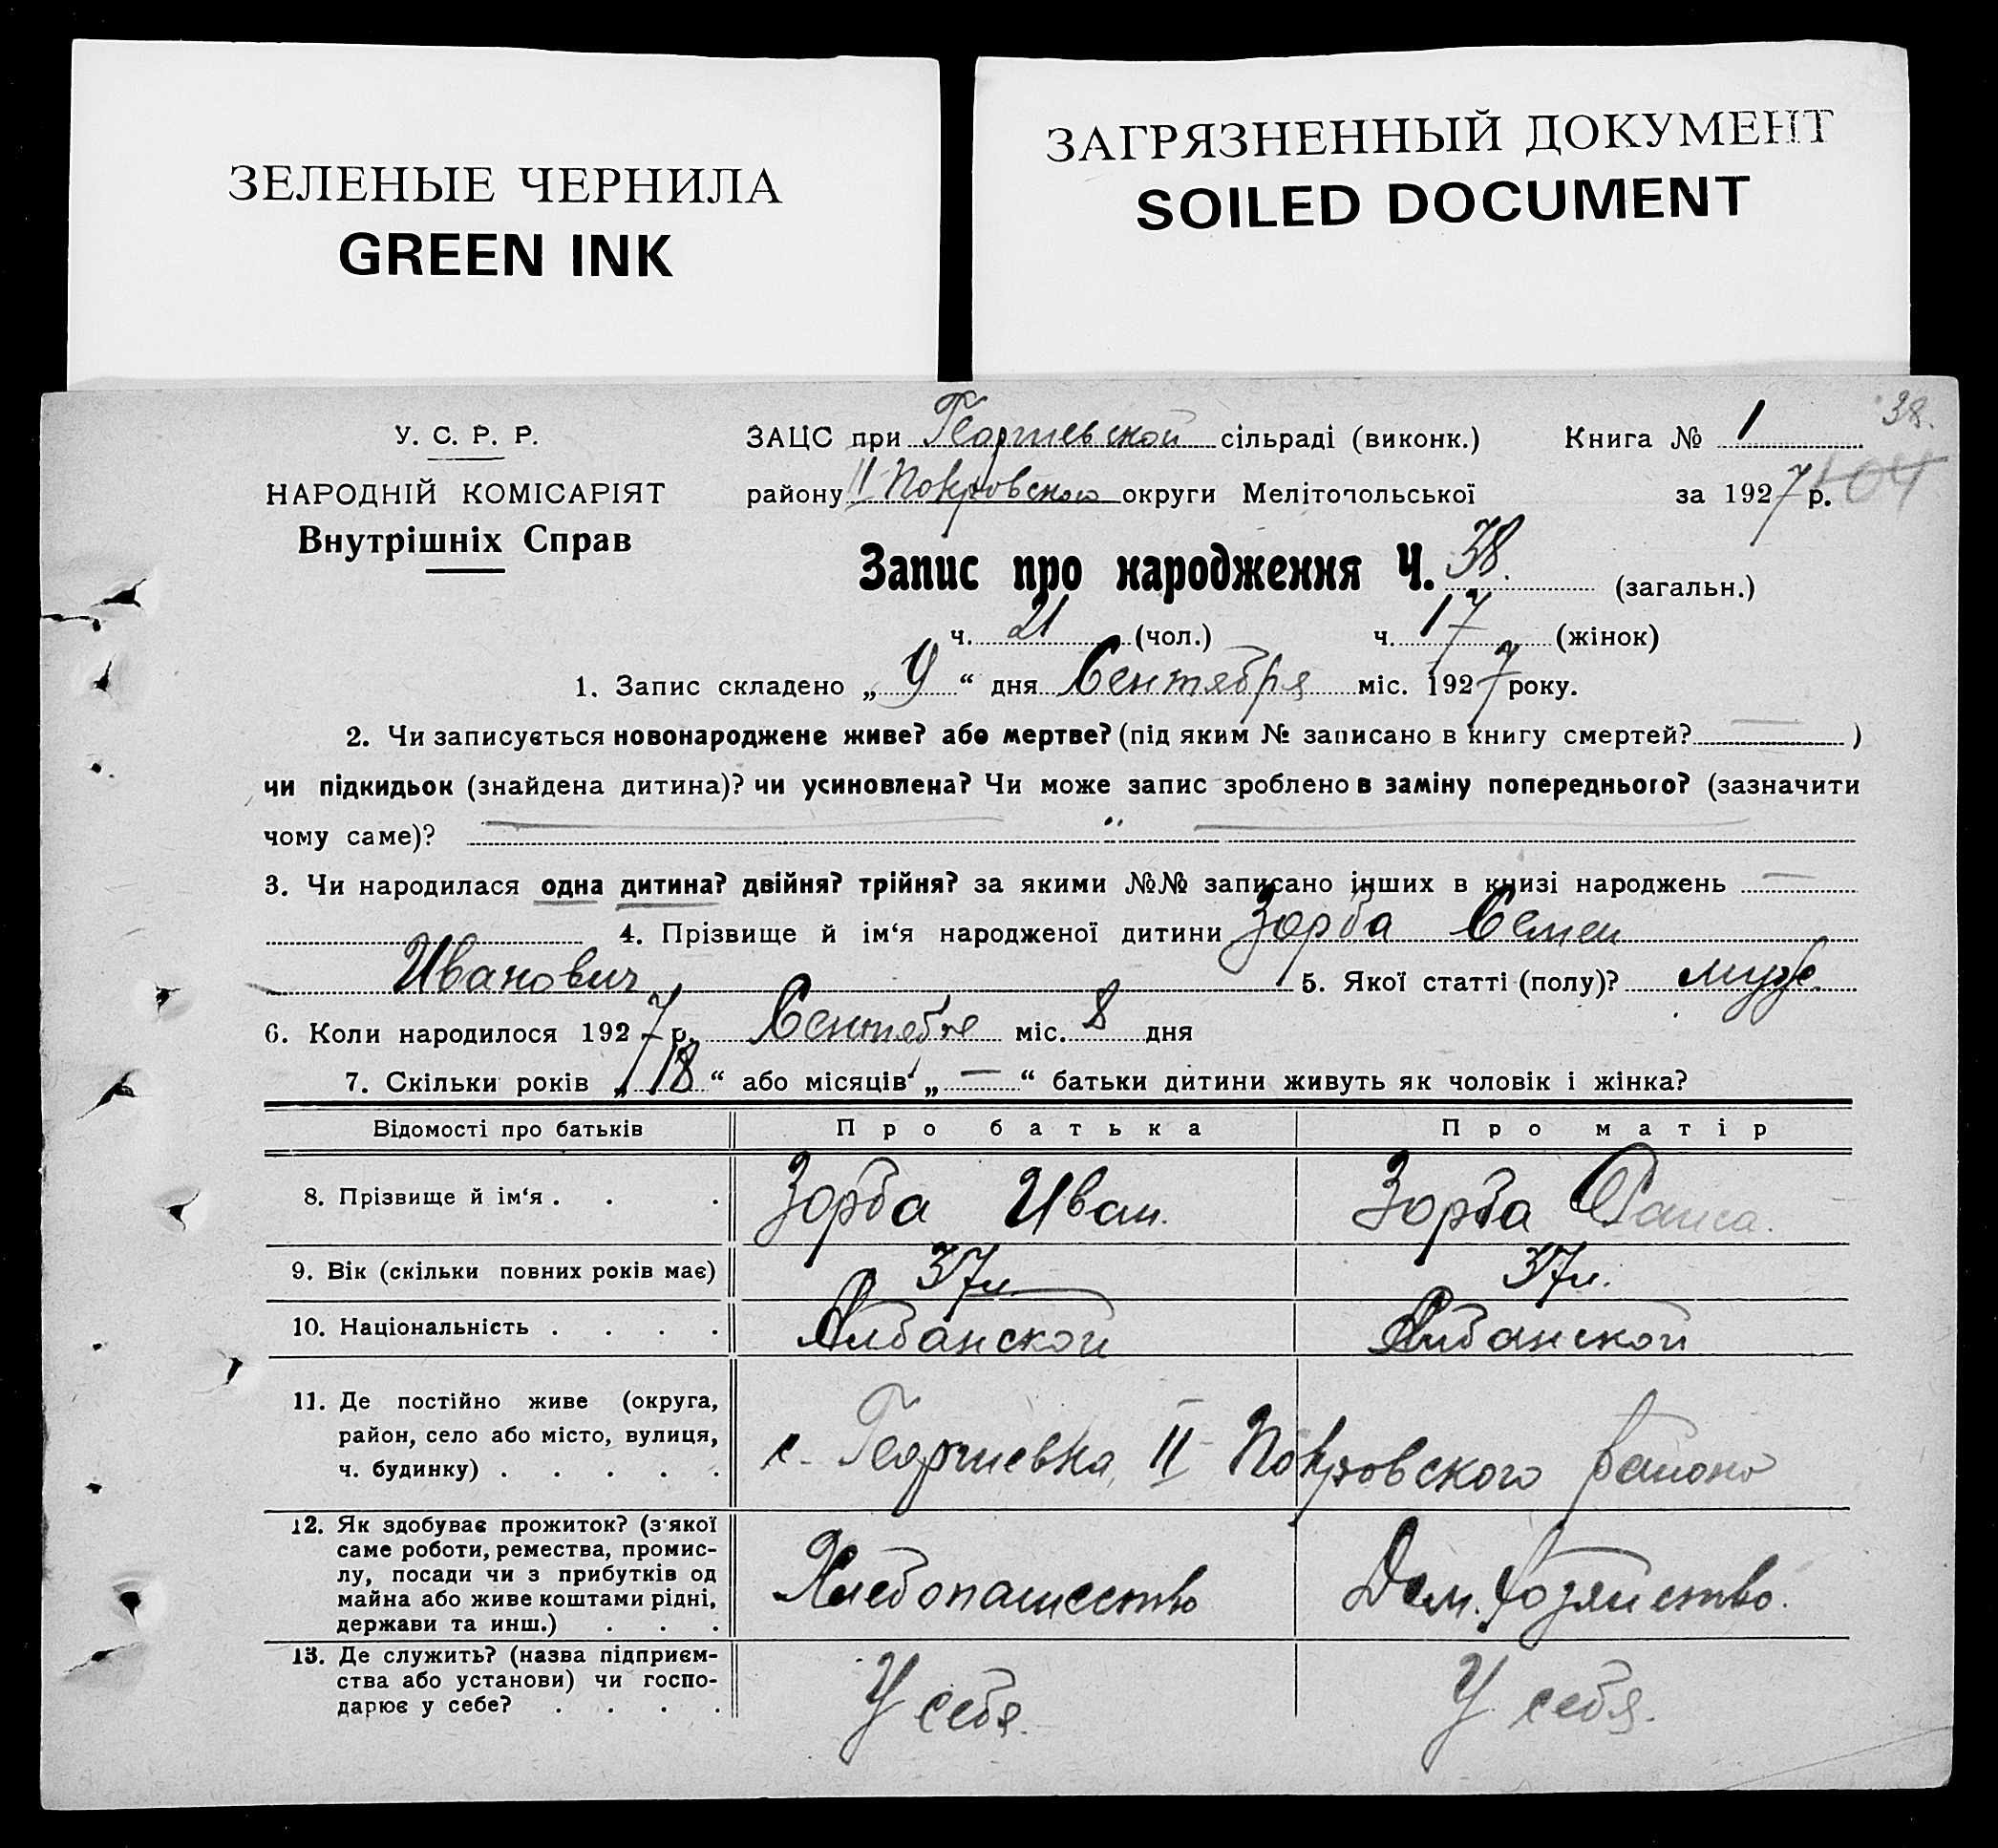 ЗЕЛЕНЫЕ ЧЕРНИЛА
GREEN INK
ЗАГРЯЗНЕННЫЙ ДОКУМЕНТ
SOILED DOCUMENT
38.
У. С. Р. Р.
НАРОДНІЙ КОМІСАРІЯТ
Внутрішніх Справ
ЗАЦС при Георгиевской сільраді (виконк.) Книга № 1
району II Покровского округи Мелітопольської за 1927 р. 104
Запис про народження Ч. 38. (загальн.)
ч. 21 (чол.) ч. 17 (жінок)
1. Запис складено „ 9 “ дня Сентября міс. 1927 року.
2. Чи записується новонароджене живе? або мертве? (під яким № записано в книгу смертей? — )
чи підкидьок (знайдена дитина)? чи усиновлена? Чи може запис зроблено в заміну попереднього? (зазначити
чому саме)? — „ —
3. Чи народилася одна дитина? двійня? трійня? за якими №№ записано інших в книзі народжень —
4. Прізвище й ім‘я народженої дитини Зорба Семен
Иванович 5. Якої статті (полу)? муж.
6. Коли народилося 1927 р. Сентябре міс. 8 дня
7. Скільки років „ 18 “ або місяців „ — “ батьки дитини живуть як чоловік і жінка?
Відомості про батьків Про батька Про матір
8. Прізвище й ім‘я . . . Зорба Иван. Зорба Раиса.
9. Вік (скільки повних років має) 37 л. 37 л.
10. Національність . . . . Албанской Албанской
11. Де постійно живе (округа,
район, село або місто, вулиця,
ч. будинку) . . . . . с. Георгиевка, II Покровского района
12. Як здобуває прожиток? (з якої
саме роботи, ремества, промис-
лу, посади чи з прибутків од
майна або живе коштами рідні,
держави та инш.) . . . Хлебопашество Дом. хозяйство.
13. Де служить? (назва підприєм-
ства або установи) чи госпо-
дарює у себе? . . . . У себя. У себя.